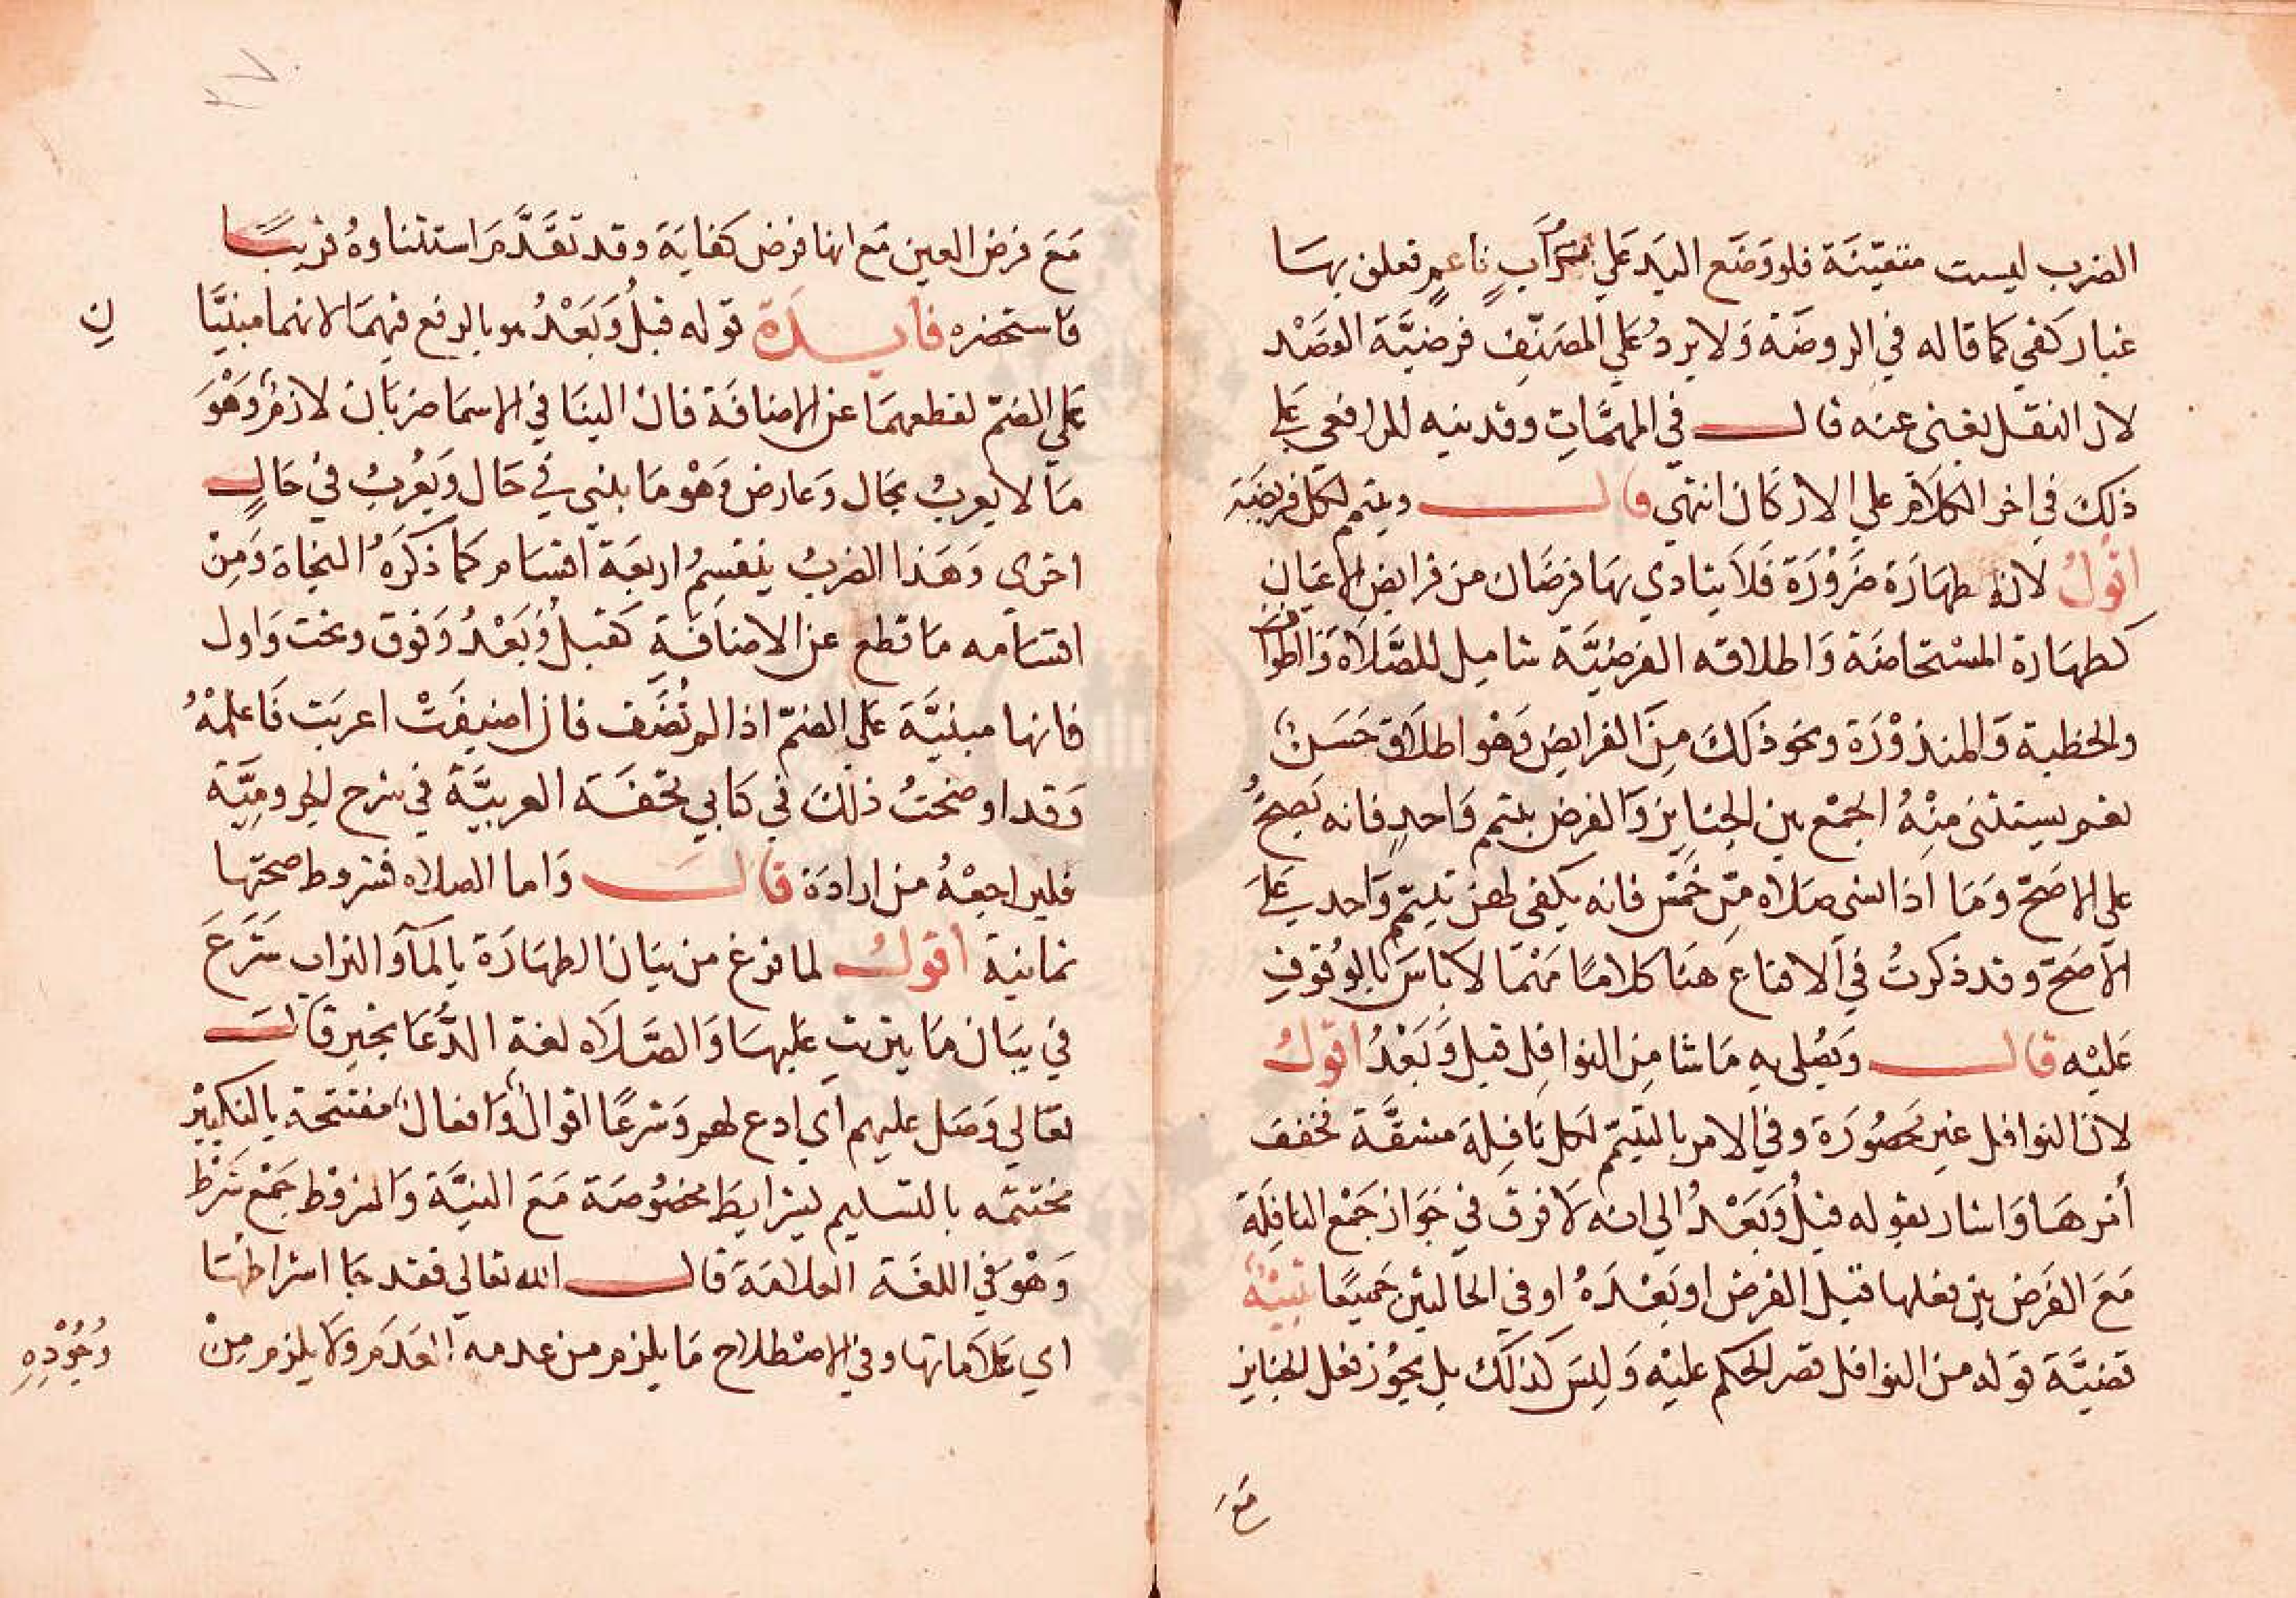 الضرب ليست متعينة فلو وضع اليد على تراب ناعم وتعلق بهسا
غبار كفي كما قاله في الروضة ولا يرد على المصنف فرضية القصد
لان النقل يغنى عنه قال في المهمات وقد نبه للرافعي على
ذلك في اخر الكلام على الاركان انتهي قال ويتيمم لكل فريضة
اقول لانه طهارة ضرورة فلا يتادي بها فرضان من فرايض الاعيان
كطهارة المستحاضة واطلاقه الفرضية شامل للصلاة والطواف
والخطبة والمنذورة ونحو ذلك من الفرايض وهو اطلاق حسن
نعم يستثنى منه الجمع بين الجنايز والفرض بتيمم واحد فانه يصح
على الاصح وما اذا نسي صلاه من خمس فانه يكفي لهن تيمم واحد على
الاصح وقد ذكرت في الاقناع هنا كلاما مهما لا باس بالوقوف
عليه قال ويصلى به ماشا من النوافل قبل وبعد اقول
لان النوافل غير محصورة وفي الامر بالتيمم لكل نافلة مشقة فخفف
امرها واشار بقوله قبل وبعد الى انه لا فرق في جواز جمع النافلة
مع الفرض بين فعلها قبل الفرض او بعده او في الحالين جميعا تنبيه
قضية قوله من النوافل قصر الحكم عليه وليس كذلك بل يجوز فعل الجنايز
مع
مع فرض العين مع انها فرض كفاية وقد تقدم استثناوه قريبا
فاستحضره فايدة قوله قبل وبعد هو بالرفع فيهما لانهما مبنيا
ن
على الضم لقطعهما عن الاضافة فان البنا في الاسما ضربان لازم وهو
ما لا يعرب بحال وعارض وهو ما يبني في حال ويعرب في حال
اخرى وهذا الضرب ينقسم اربعة اقسام كما ذكره النحاة ومن
اقسامه ما قطع عن الاضافة كقبل وبعد وفوق وتحت واول
فانها مبنية على الضم اذا لم تضف فان اضيفت اعربت فاعلمه
وقد اوضحت ذلك في كتابي تحفة العربية في شرح الجرومية
فليراجعه من اراده قال واما الصلاه فشروط صحتها
ثمانية اقول لما فرغ من بيان الطهارة بالمآ والتراب شرع
في بيان ما يترتب عليهسا والصلاه لغة الدعا بخير قال
تعالي وصل عليهم اي ادع لهم وشرعا اقوال وافعال مفتتحة بالتكبير
مختتمه بالتسليم بشرايط مخصوصة مع النية والشروط جمع شرط
وهو في اللغة العلامة قال الله تعالي فقد جا اشراطها
اي علاماتها وفي الاصطلاح ما يلزم من عدمه العدم ولا يلزم من
وجوده